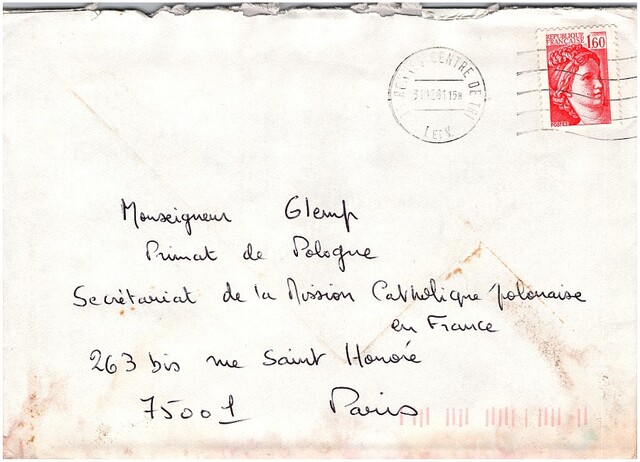 REPUBLIQUE
FRANÇAISE 1,60
POSTES
RENNES CENTRE DE TRI
31.12.81 15H
I. et V.
Monseigneur Glemp
Primat de Pologne
Secrétariat de la Mission Catholique polonaise
en France
263 bis rue Saint Honoré
75001 Paris